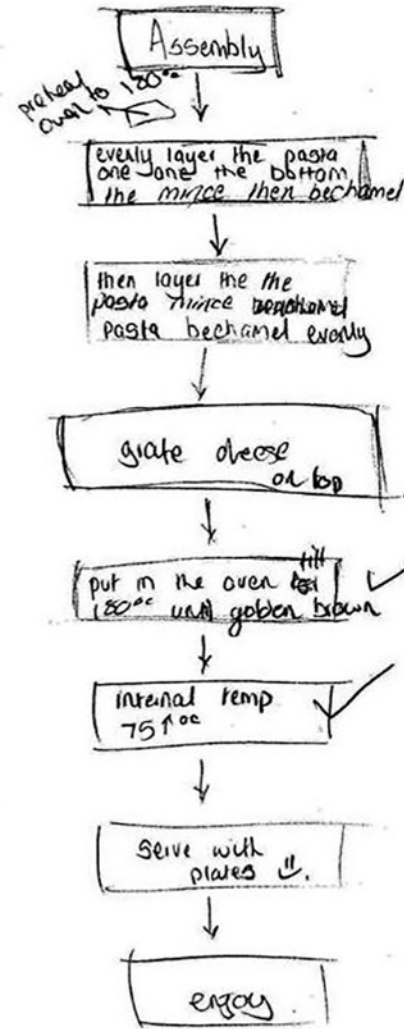 Assembly
preheat
oven to 180°c
evenly layer the pasta
one one the bottom
the mince then bechamel
then layer the the
pasta mince
pasta bechamel evenly
grate cheese
on top
put in the oven till
180°c until golden brown
internal temp
75↑°c
Serve with
plates
enjoy